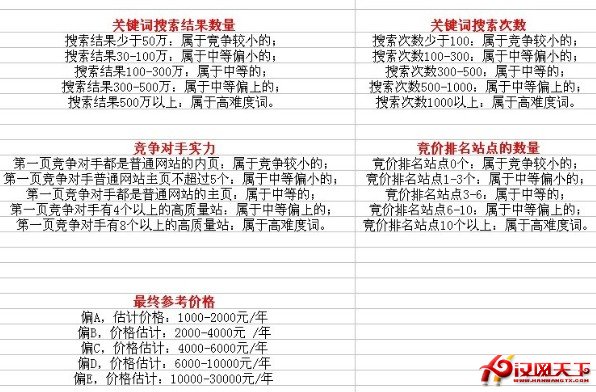 关键词搜索结果数量
搜索结果少于50万：属于竞争较小的；
搜索结果30-100万，属于中等偏小的；
搜索结果100-300万：属于中等的；
搜索结果300-500万：属于中等偏上的；
搜索结果500万以上：属于高难度词。
关键词搜索次数
搜索次数少于100：属于竞争较小的；
搜索次数100-300：属于中等偏小的；
搜索次数300-500：属于中等的；
搜索次数500-1000：属于中等偏上的；
搜索次数1000以上：属于高难度词。
竞争对手实力
第一页竞争对手都是普通网站的内页：属于竞争较小的；
第一页竞争对手普通网站主页不超过5个：属于中等偏小的；
第一页竞争对手都是普通网站的主页：属于中等的；
第一页竞争对手有4个以上的高质量站：属于中等偏上的；
第一页竞争对手有8个以上的高质量站：属于高难度词。
竞价排名站点的数量
竞价排名站点0个：属于竞争较小的；
竞价排名站点1-3个：属于中等偏小的；
竞价排名站点3-6：属于中等的；
竞价排名站点6-10：属于中等偏上的；
竞价排名站点10个以上：属于高难度词。
最终参考价格
偏A，估计价格：1000-2000元/年
偏B，价格估计：2000-4000元 /年
偏C，价格估计：4000-6000元/年
偏D，价格估计：6000-10000元/年
偏E，价格估计：10000-30000元/年
汉网天下
www.HANWANGTX.COM